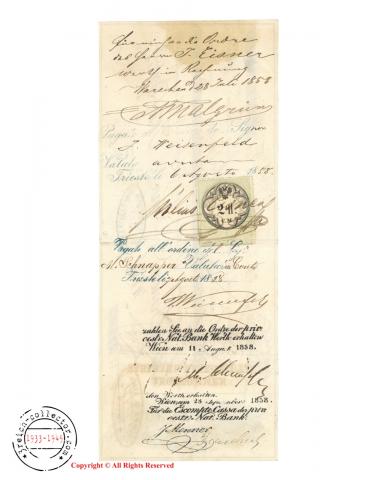 Für mich an die Ordre
des Herrn J. Eisner
Werth in Rechnung
Warschau 28 Juli 1858
Pagate all' ordine Signor
J. Weisenfeld
Valuta avuta
Trieste li 6 Agosto 1858
2 fl.
Pagate all' ordine del Sig.
M. Schnapper Valuta in Conto
Trieste li Agosto 1858
zahlen Sie an die Ordre der priv
oestr. Nat. Bank Werth erhalten
Wien am 11 August 1858.
den Werth erhalten.
Wien am 28 September 1858.
Für die Escompte Cassa der priv
oestr. Nat. Bank.
3reich-collector.com
1933-1945
Copyright © All Rights Reserved